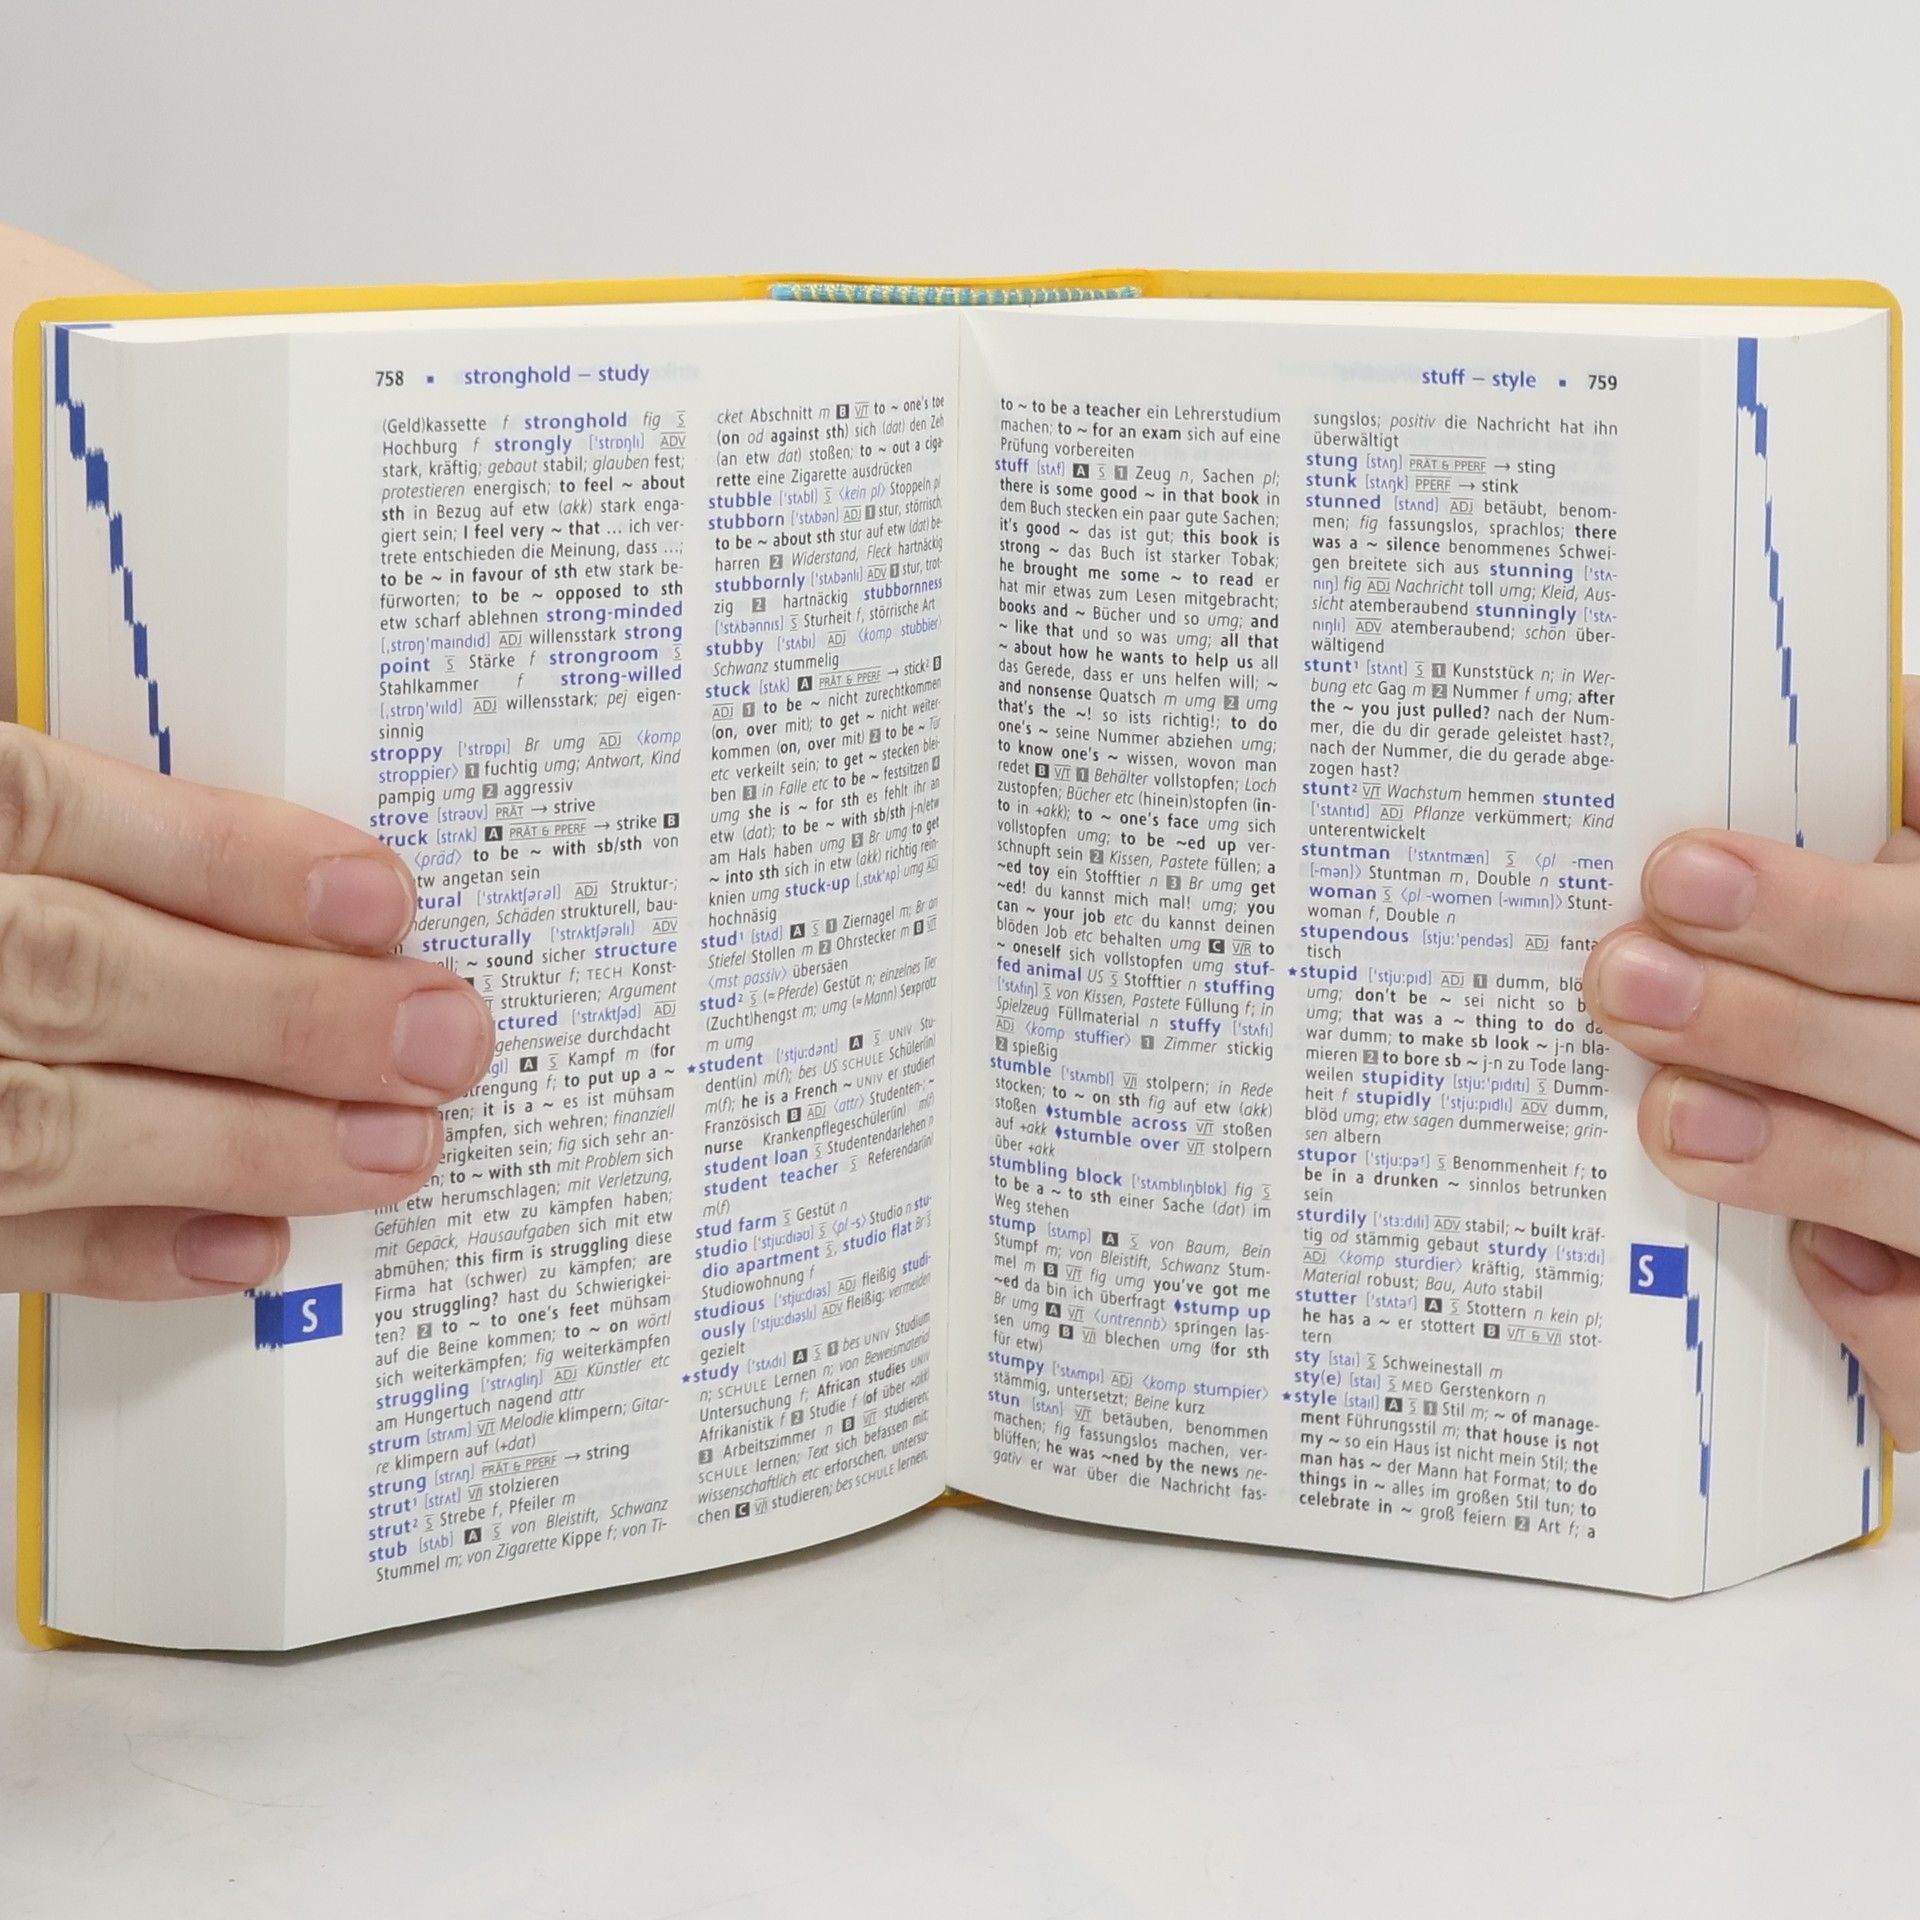 758 ▪ stronghold – study
(Geld)kassette f stronghold fig S
Hochburg f strongly [ˈstrɒŋlɪ] ADV
stark, kräftig; gebaut stabil; glauben fest;
protestieren energisch; to feel ~ about
sth in Bezug auf etw (akk) stark enga-
giert sein; I feel very ~ that ... ich ver-
trete entschieden die Meinung, dass ...;
to be ~ in favour of sth etw stark be-
fürworten; to be ~ opposed to sth
etw scharf ablehnen strong-minded
[ˌstrɒŋˈmaɪndɪd] ADJ willensstark strong
point S Stärke f strongroom S
Stahlkammer f strong-willed
[ˌstrɒŋˈwɪld] ADJ willensstark; pej eigen-
sinnig
stroppy [ˈstrɒpɪ] Br umg ADJ ⟨komp
stroppier⟩ 1 fuchtig umg; Antwort, Kind
pampig umg 2 aggressiv
strove [strəʊv] PRÄT → strive
truck [strʌk] A PRÄT & PPERF → strike B
⟨präd⟩ to be ~ with sb/sth von
etw angetan sein
tural [ˈstrʌktʃərəl] ADJ Struktur-;
nderungen, Schäden strukturell, bau-
structurally [ˈstrʌktʃərəlɪ] ADV
ell; ~ sound sicher structure
S Struktur f; TECH Konst-
strukturieren; Argument
ctured [ˈstrʌktʃəd] ADJ
gehensweise durchdacht
gl] A S Kampf m (for
trengung f; to put up a ~
ren; it is a ~ es ist mühsam
ämpfen, sich wehren; finanziell
erigkeiten sein; fig sich sehr an-
n; to ~ with sth mit Problem sich
mit etw herumschlagen; mit Verletzung,
Gefühlen mit etw zu kämpfen haben;
mit Gepäck, Hausaufgaben sich mit etw
abmühen; this firm is struggling diese
Firma hat (schwer) zu kämpfen; are
you struggling? hast du Schwierigkei-
ten? 2 to ~ to one's feet mühsam
auf die Beine kommen; to ~ on wörtl
sich weiterkämpfen; fig weiterkämpfen
struggling [ˈstrʌglɪŋ] ADJ Künstler etc
am Hungertuch nagend attr
strum [strʌm] V/T Melodie klimpern; Gitar-
re klimpern auf (+dat)
strung [strʌŋ] PRÄT & PPERF → string
strut¹ [strʌt] V/I stolzieren
strut² S Strebe f, Pfeiler m
stub [stʌb] A S von Bleistift, Schwanz
Stummel m; von Zigarette Kippe f; von Ti-
S
cket Abschnitt m B V/T to ~ one's toe
(on od against sth) sich (dat) den Zeh
(an etw dat) stoßen; to ~ out a ciga-
rette eine Zigarette ausdrücken
stubble [ˈstʌbl] S ⟨kein pl⟩ Stoppeln pl
stubborn [ˈstʌbən] ADJ 1 stur, störrisch;
to be ~ about sth stur auf etw (dat) be-
harren 2 Widerstand, Fleck hartnäckig
stubbornly [ˈstʌbənlɪ] ADV 1 stur, trot-
zig 2 hartnäckig stubbornness
[ˈstʌbənnɪs] S Sturheit f, störrische Art
stubby [ˈstʌbɪ] ADJ ⟨komp stubbier⟩
Schwanz stummelig
stuck [stʌk] A PRÄT & PPERF → stick² B
ADJ 1 to be ~ nicht zurechtkommen
(on, over mit); to get ~ nicht weiter-
kommen (on, over mit) 2 to be ~ Tür
etc verkeilt sein; to get ~ stecken blei-
ben 3 in Falle etc to be ~ festsitzen 4
umg she is ~ for sth es fehlt ihr an
etw (dat); to be ~ with sb/sth j-n/etw
am Hals haben umg 5 Br umg to get
~ into sth sich in etw (akk) richtig rein-
knien umg stuck-up [ˌstʌkˈʌp] umg ADJ
hochnäsig
stud¹ [stʌd] A S 1 Ziernagel m; Br an
Stiefel Stollen m 2 Ohrstecker m B V/T
⟨mst passiv⟩ übersäen
stud² S (=Pferde) Gestüt n; einzelnes Tier
(Zucht)hengst m; umg (=Mann) Sexprotz
m umg
★student [ˈstjuːdənt] A S UNIV Stu-
dent(in) m(f); bes US SCHULE Schüler(in)
m(f); he is a French ~ UNIV er studiert
Französisch B ADJ ⟨attr⟩ Studenten-; ~
nurse Krankenpflegeschüler(in) m(f)
student loan S Studentendarlehen n
student teacher S Referendar(in)
m(f)
stud farm S Gestüt n
studio [ˈstjuːdɪəʊ] S ⟨pl -s⟩ Studio n stu-
dio apartment S, studio flat Br S
Studiowohnung f
studious [ˈstjuːdɪəs] ADJ fleißig studi-
ously [ˈstjuːdɪəslɪ] ADV fleißig; vermeiden
gezielt
★study [ˈstʌdɪ] A S 1 bes UNIV Studium
n; SCHULE Lernen n; von Beweismaterial
Untersuchung f; African studies UNIV
Afrikanistik f 2 Studie f (of über +akk)
3 Arbeitszimmer n B V/T studieren;
SCHULE lernen; Text sich befassen mit;
wissenschaftlich etc erforschen, untersu-
chen C V/I studieren; bes SCHULE lernen;
stuff – style ▪ 759
to ~ to be a teacher ein Lehrerstudium
machen; to ~ for an exam sich auf eine
Prüfung vorbereiten
stuff [stʌf] A S 1 Zeug n, Sachen pl;
there is some good ~ in that book in
dem Buch stecken ein paar gute Sachen;
it's good ~ das ist gut; this book is
strong ~ das Buch ist starker Tobak;
he brought me some ~ to read er
hat mir etwas zum Lesen mitgebracht;
books and ~ Bücher und so umg; and
~ like that und so was umg; all that
~ about how he wants to help us all
das Gerede, dass er uns helfen will; ~
and nonsense Quatsch m umg 2 umg
that's the ~! so ists richtig!; to do
one's ~ seine Nummer abziehen umg;
to know one's ~ wissen, wovon man
redet B V/T 1 Behälter vollstopfen; Loch
zustopfen; Bücher etc (hinein)stopfen (in-
to in +akk); to ~ one's face umg sich
vollstopfen umg; to be ~ed up ver-
schnupft sein 2 Kissen, Pastete füllen; a
~ed toy ein Stofftier n 3 Br umg get
~ed! du kannst mich mal! umg; you
can ~ your job etc du kannst deinen
blöden Job etc behalten umg C V/R to
~ oneself sich vollstopfen umg stuf-
fed animal US S Stofftier n stuffing
[ˈstʌfɪŋ] S von Kissen, Pastete Füllung f; in
Spielzeug Füllmaterial n stuffy [ˈstʌfɪ]
ADJ ⟨komp stuffier⟩ 1 Zimmer stickig
2 spießig
stumble [ˈstʌmbl] V/I stolpern; in Rede
stocken; to ~ on sth fig auf etw (akk)
stoßen ♦stumble across V/T stoßen
auf +akk ♦stumble over V/T stolpern
über +akk
stumbling block [ˈstʌmblɪŋblɒk] fig S
to be a ~ to sth einer Sache (dat) im
Weg stehen
stump [stʌmp] A S von Baum, Bein
Stumpf m; von Bleistift, Schwanz Stum-
mel m B V/T fig umg you've got me
~ed da bin ich überfragt ♦stump up
Br umg A V/T ⟨untrennb⟩ springen las-
sen umg B V/I blechen umg (for sth
für etw)
stumpy [ˈstʌmpɪ] ADJ ⟨komp stumpier⟩
stämmig, untersetzt; Beine kurz
stun [stʌn] V/T betäuben, benommen
machen; fig fassungslos machen, ver-
blüffen; he was ~ned by the news ne-
gativ er war über die Nachricht fas-
sungslos; positiv die Nachricht hat ihn
überwältigt
stung [stʌŋ] PRÄT & PPERF → sting
stunk [stʌŋk] PPERF → stink
stunned [stʌnd] ADJ betäubt, benom-
men; fig fassungslos, sprachlos; there
was a ~ silence benommenes Schwei-
gen breitete sich aus stunning [ˈstʌ-
nɪŋ] fig ADJ Nachricht toll umg; Kleid, Aus-
sicht atemberaubend stunningly [ˈstʌ-
nɪŋlɪ] ADV atemberaubend; schön über-
wältigend
stunt¹ [stʌnt] S 1 Kunststück n; in Wer-
bung etc Gag m 2 Nummer f umg; after
the ~ you just pulled? nach der Num-
mer, die du dir gerade geleistet hast?,
nach der Nummer, die du gerade abge-
zogen hast?
stunt² V/T Wachstum hemmen stunted
[ˈstʌntɪd] ADJ Pflanze verkümmert; Kind
unterentwickelt
stuntman [ˈstʌntmæn] S ⟨pl -men
[-mən]⟩ Stuntman m, Double n stunt-
woman S ⟨pl -women [-wɪmɪn]⟩ Stunt-
woman f, Double n
stupendous [stjuːˈpendəs] ADJ fanta
tisch
★stupid [ˈstjuːpɪd] ADJ 1 dumm, blö
umg; don't be ~ sei nicht so b
umg; that was a ~ thing to do da
war dumm; to make sb look ~ j-n bla-
mieren 2 to bore sb ~ j-n zu Tode lang-
weilen stupidity [stjuːˈpɪdɪtɪ] S Dumm-
heit f stupidly [ˈstjuːpɪdlɪ] ADV dumm,
blöd umg; etw sagen dummerweise; grin-
sen albern
stupor [ˈstjuːpəʳ] S Benommenheit f; to
be in a drunken ~ sinnlos betrunken
sein
sturdily [ˈstɜːdɪlɪ] ADV stabil; ~ built kräf-
tig od stämmig gebaut sturdy [ˈstɜːdɪ]
ADJ ⟨komp sturdier⟩ kräftig, stämmig;
Material robust; Bau, Auto stabil
stutter [ˈstʌtəʳ] A S Stottern n kein pl;
he has a ~ er stottert B V/T & V/I stot-
tern
sty [staɪ] S Schweinestall m
sty(e) [staɪ] S MED Gerstenkorn n
★style [staɪl] A S 1 Stil m; ~ of manage-
ment Führungsstil m; that house is not
my ~ so ein Haus ist nicht mein Stil; the
man has ~ der Mann hat Format; to do
things in ~ alles im großen Stil tun; to
celebrate in ~ groß feiern 2 Art f; a
S